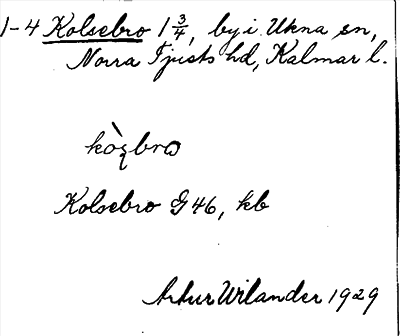 1-4 Kolsebro 1 3/4, by i Ukna sn,
Norra Tjusts hd, Kalmar l.
kòʂbrɷ
Kolsebro G 46, kb
Artur Wilander 1929